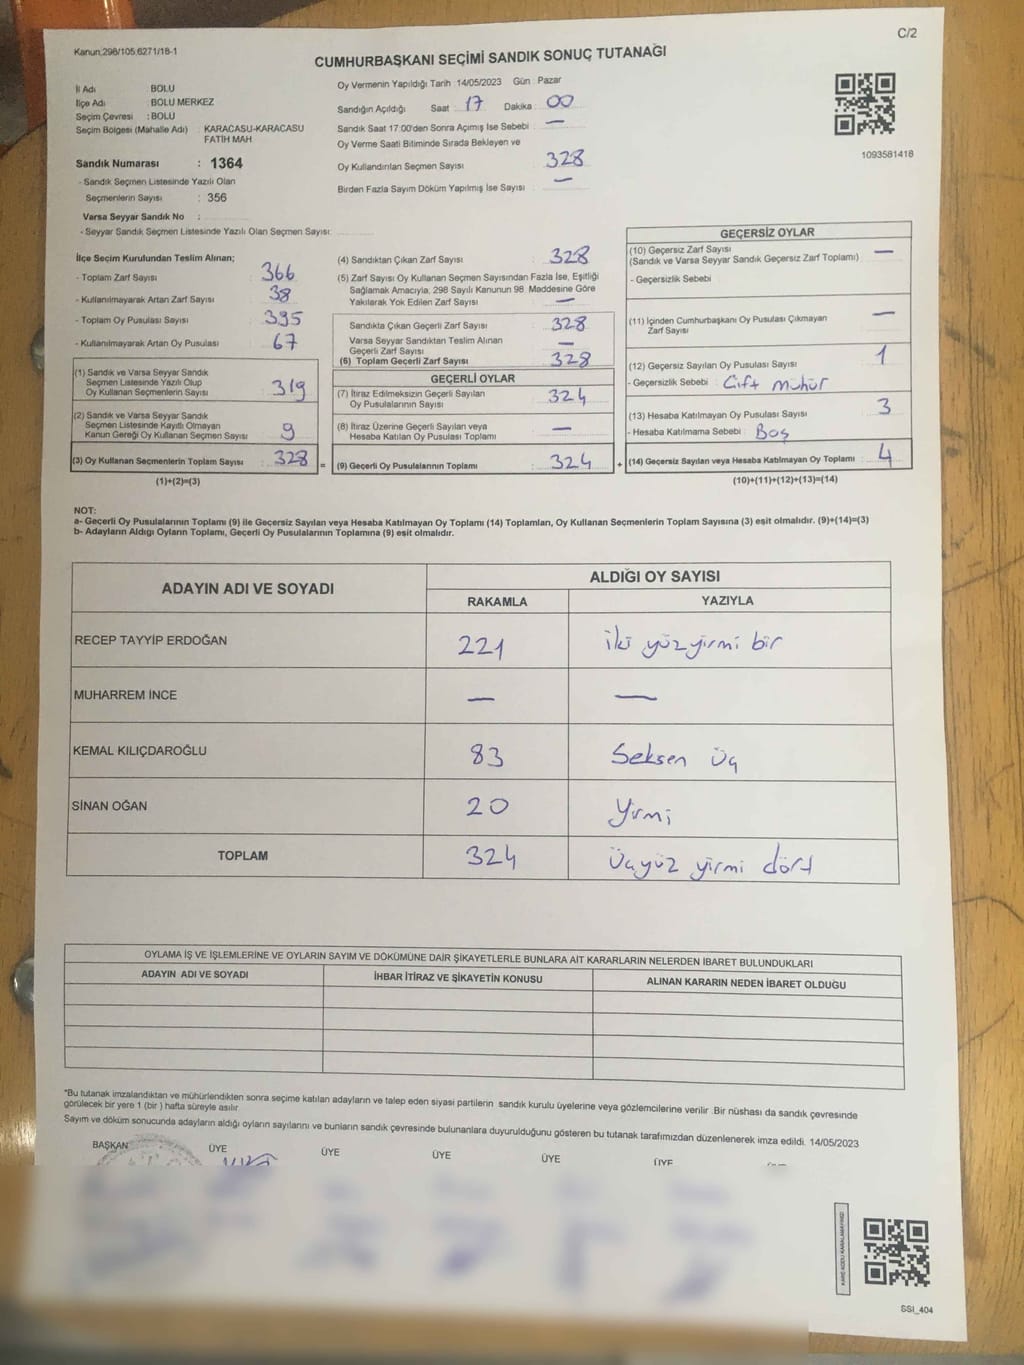 C/2
Kanun:298/105.6271/18-1
CUMHURBAŞKANI SEÇİMİ SANDIK SONUÇ TUTANAĞI
İl Adı BOLU
İlçe Adı : BOLU MERKEZ
Seçim Çevresi : BOLU
Seçim Bölgesi (Mahalle Adı) : KARACASU-KARACASU
FATİH MAH
Sandık Numarası : 1364
- Sandık Seçmen Listesinde Yazılı Olan
Seçmenlerin Sayısı : 356
Varsa Seyyar Sandık No :
- Seyyar Sandık Seçmen Listesinde Yazılı Olan Seçmen Sayısı:
Oy Vermenin Yapıldığı Tarih 14/05/2023 Gün Pazar
Sandığın Açıldığı Saat 17 Dakika 00
Sandık Saat 17:00'den Sonra Açımış İse Sebebi : —
Oy Verme Saati Bitiminde Sırada Bekleyen ve
Oy Kullandırılan Seçmen Sayısı 328
Birden Fazla Sayım Döküm Yapılmış İse Sayısı : —
1093581418
İlçe Seçim Kurulundan Teslim Alınan;
- Toplam Zarf Sayısı : 366
- Kullanılmayarak Artan Zarf Sayısı : 38
- Toplam Oy Pusulası Sayısı : 395
- Kullanılmayarak Artan Oy Pusulası : 67
(1) Sandık ve Varsa Seyyar Sandık
Seçmen Listesinde Yazılı Olup
Oy Kullanan Seçmenlerin Sayısı : 319
(2) Sandık ve Varsa Seyyar Sandık
Seçmen Listesinde Kayıtlı Olmayan
Kanun Gereği Oy Kullanan Seçmen Sayısı : 9
(3) Oy Kullanan Seçmenlerin Toplam Sayısı : 328 =
(1)+(2)=(3)
(4) Sandıktan Çıkan Zarf Sayısı : 328
(5) Zarf Sayısı Oy Kullanan Seçmen Sayısından Fazla İse, Eşitliği
Sağlamak Amacıyla, 298 Sayılı Kanunun 98. Maddesine Göre
Yakılarak Yok Edilen Zarf Sayısı : —
Sandıkta Çıkan Geçerli Zarf Sayısı : 328
Varsa Seyyar Sandıktan Teslim Alınan
Geçerli Zarf Sayısı : —
(6) Toplam Geçerli Zarf Sayısı : 328
GEÇERLİ OYLAR
(7) İtiraz Edilmeksizin Geçerli Sayılan
Oy Pusulalarının Sayısı : 324
(8) İtiraz Üzerine Geçerli Sayılan veya
Hesaba Katılan Oy Pusulası Toplamı : —
(9) Geçerli Oy Pusulalarının Toplamı : 324 +
GEÇERSİZ OYLAR
(10) Geçersiz Zarf Sayısı —
(Sandık ve Varsa Seyyar Sandık Geçersiz Zarf Toplamı)
- Geçersizlik Sebebi
(11) İçinden Cumhurbaşkanı Oy Pusulası Çıkmayan
Zarf Sayısı —
(12) Geçersiz Sayılan Oy Pusulası Sayısı 1
- Geçersizlik Sebebi : Çift mühür
(13) Hesaba Katılmayan Oy Pusulası Sayısı 3
- Hesaba Katılmama Sebebi : Boş
(14) Geçersiz Sayılan veya Hesaba Katılmayan Oy Toplamı : 4
(10)+(11)+(12)+(13)=(14)
NOT:
a- Geçerli Oy Pusulalarının Toplamı (9) ile Geçersiz Sayılan veya Hesaba Katılmayan Oy Toplamı (14) Toplamları, Oy Kullanan Seçmenlerin Toplam Sayısına (3) eşit olmalıdır. (9)+(14)=(3)
b- Adayların Aldığı Oyların Toplamı, Geçerli Oy Pusulalarının Toplamına (9) eşit olmalıdır.
ADAYIN ADI VE SOYADI ALDIĞI OY SAYISI
RAKAMLA YAZIYLA
RECEP TAYYİP ERDOĞAN 221 iki yüz yirmi bir
MUHARREM İNCE — —
KEMAL KILIÇDAROĞLU 83 Seksen Üç
SİNAN OĞAN 20 Yirmi
TOPLAM 324 Üçyüz yirmi dört
OYLAMA İŞ VE İŞLEMLERİNE VE OYLARIN SAYIM VE DÖKÜMÜNE DAİR ŞİKAYETLERLE BUNLARA AİT KARARLARIN NELERDEN İBARET BULUNDUKLARI
ADAYIN ADI VE SOYADI İHBAR İTİRAZ VE ŞİKAYETİN KONUSU ALINAN KARARIN NEDEN İBARET OLDUĞU
*Bu tutanak imzalandıktan ve mühürlendikten sonra seçime katılan adayların ve talep eden siyasi partilerin sandık kurulu üyelerine veya gözlemcilerine verilir .Bir nüshası da sandık çevresinde
görülecek bir yere 1 (bir ) hafta süreyle asılır
Sayım ve döküm sonucunda adayların aldığı oyların sayılarını ve bunların sandık çevresinde bulunanlara duyurulduğunu gösteren bu tutanak tarafımızdan düzenlenerek imza edildi. 14/05/2023
BAŞKAN ÜYE ÜYE ÜYE ÜYE ÜYE
SSI_404